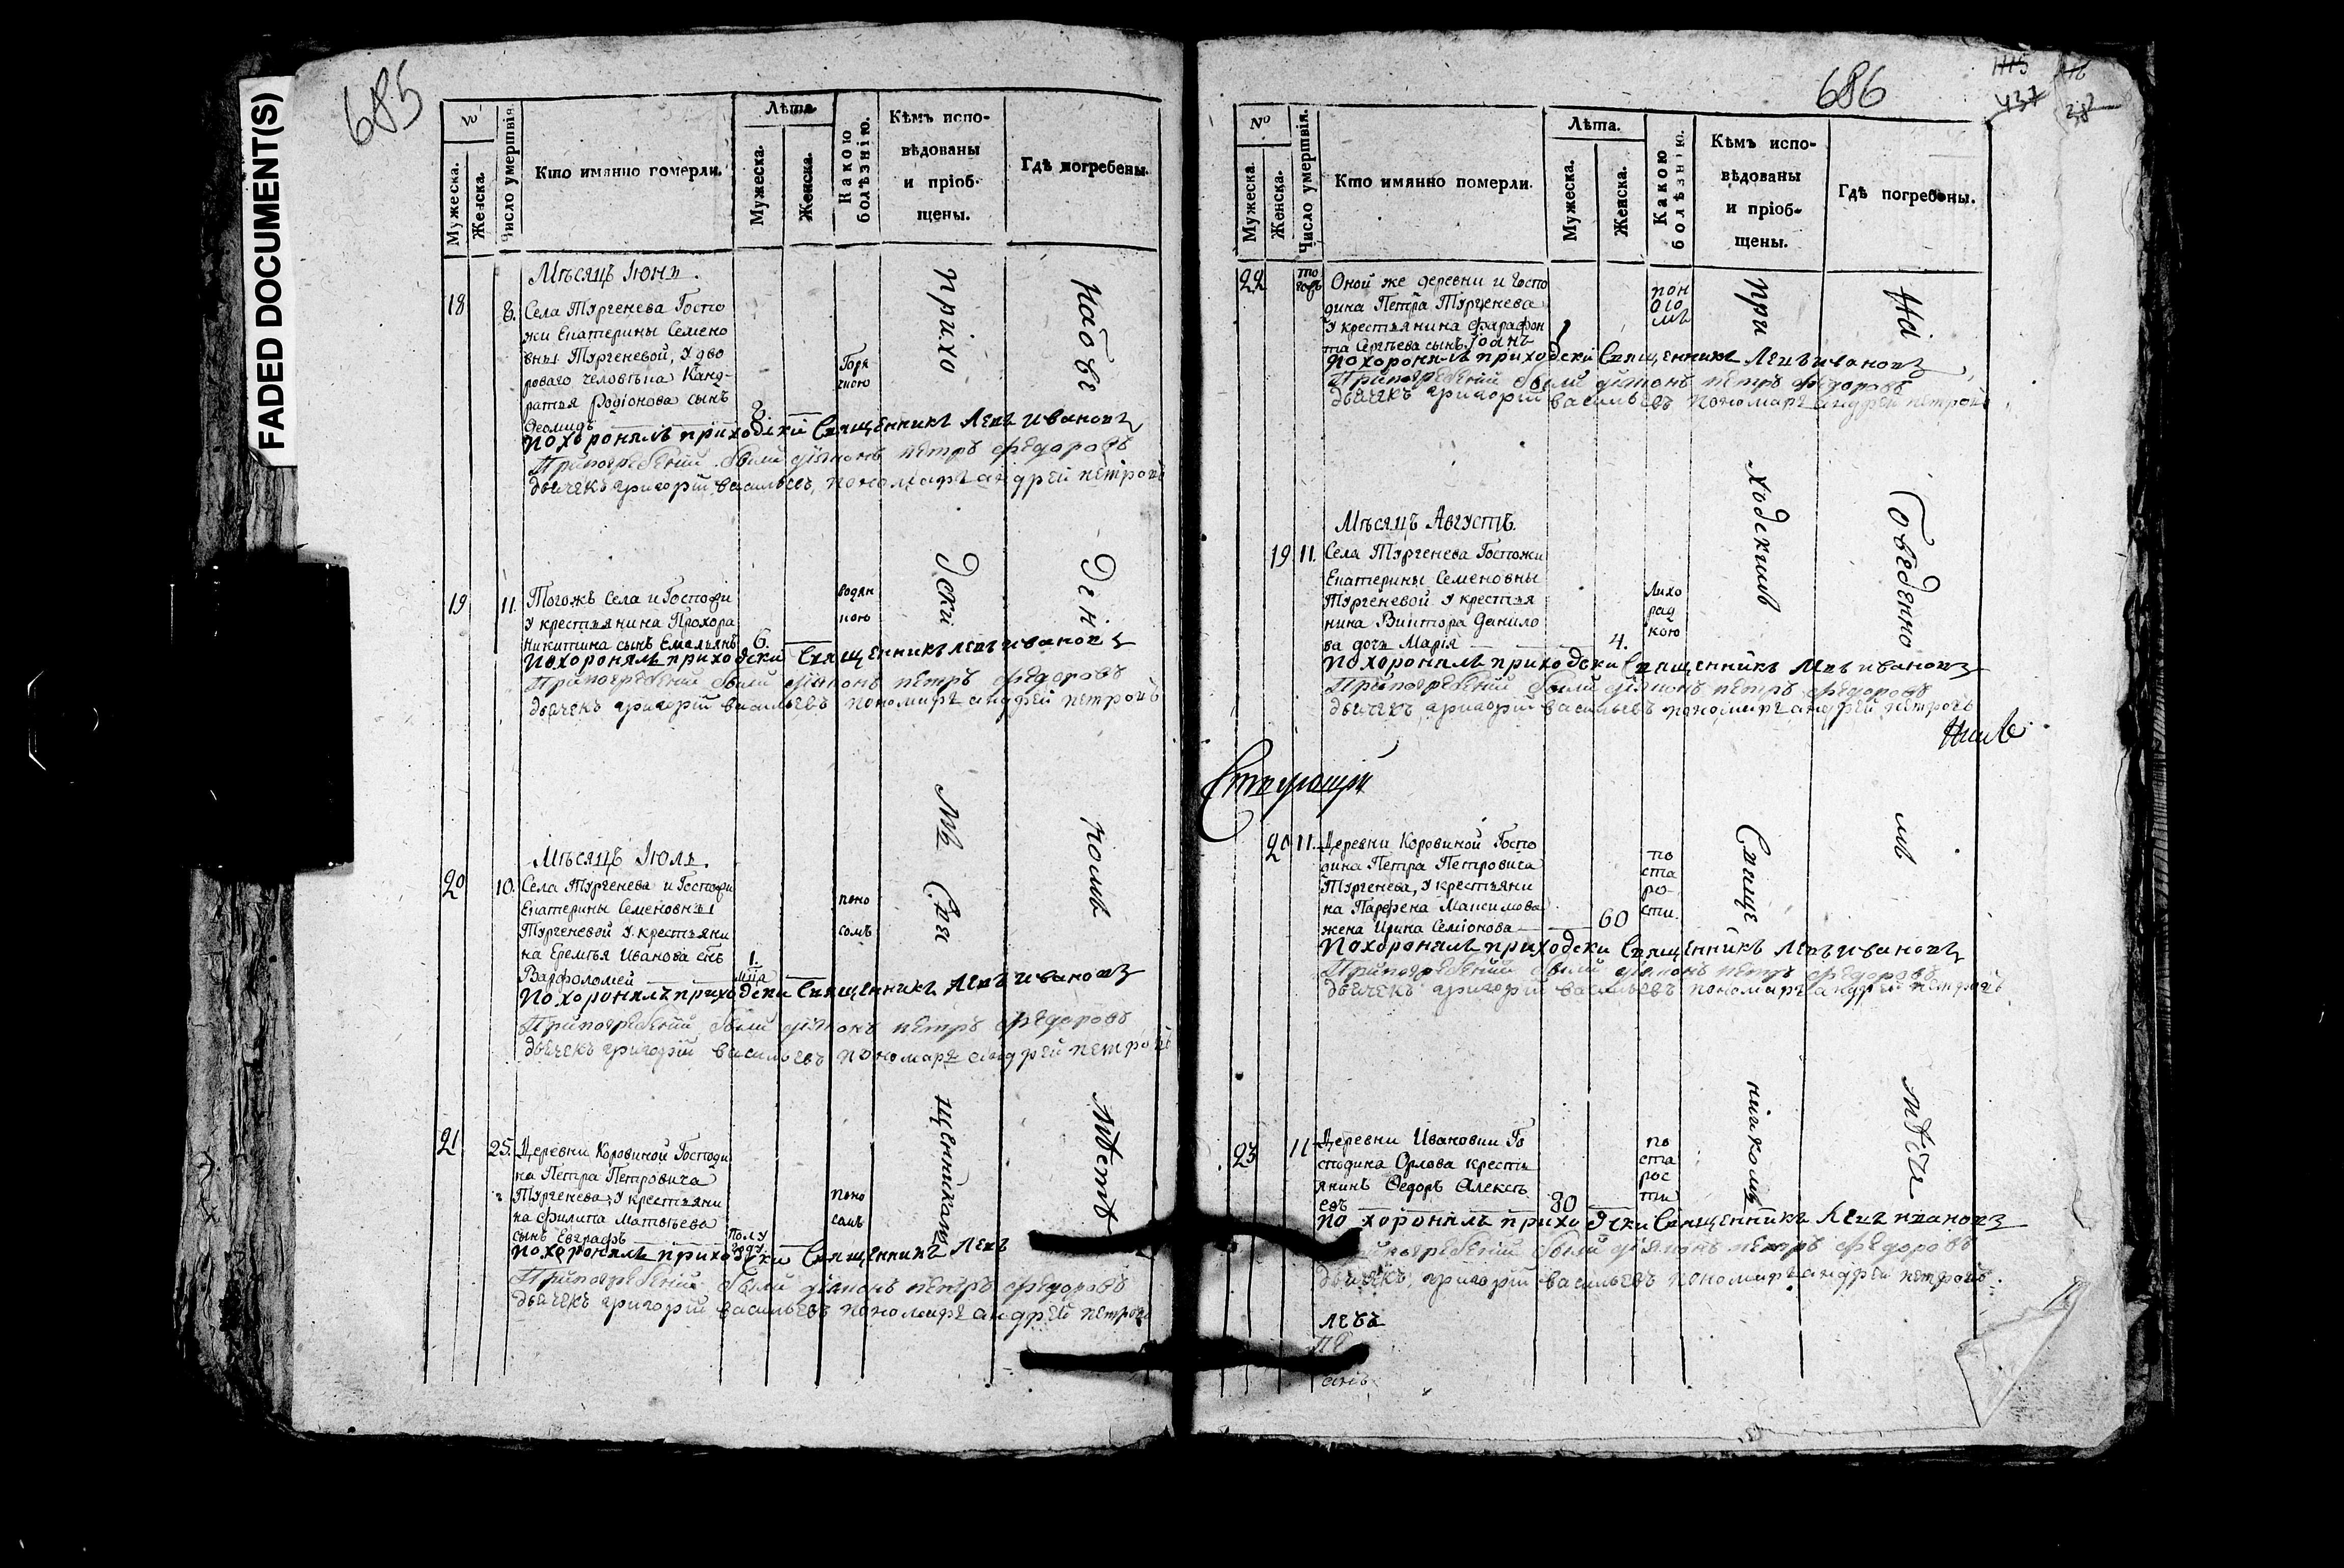 FADED DOCUMENT(S)
685
№
Мужеска.
Женска.
Число умертвія.
Кто имянно померли.
Лѣта.
Мужеска.
Женска.
Какою болѣзнію.
Кѣмъ испо-
вѣдованы
и пріоб-
щены.
Гдѣ погребены.
Мѣсяцъ Іюнь.
18 8. Села Тургенева Госпо
жи Екатерины Семено
вны Тургеневой, У дво
роваго человѣка Канд-
ратья Родіонова сынъ
Ѳеомидъ 8.
Горя
чкою
Похоронялъ приходски Священникъ Левъ Ивановъ
Припогребеніи были діяконъ петръ федоровъ
дьячекъ григорій васильевъ, пономарь андрей петровъ
19 11. Тогожъ Села и Госпожи
У крестьянина Прохора
Никитина сынъ Емельянъ 6.
водян
кою
Похоронялъ приходски Священникъ левъ ивановъ
Припогребеніи были діяконъ петръ федоровъ
дьячекъ григорій васильевъ пономарь андрей петровъ
Мѣсяцъ Іюль.
20 10. Села Тургенева и Госпожи
Екатерины Семеновны
Тургеневой У крестьяни
на Еремѣя Иванова снъ
Варфоломей 1.
мца
поно
сомъ
Похоронялъ приходски Священникъ Левъ Ивановъ
Припогребеніи были діяконъ петръ федоровъ
дьячекъ григорій васильевъ пономарь андрей петровъ
21 25. Деревни Коровиной Господи
на Петра Петровича
Тургенева, У крестьяни
на Филипа Матвѣева
сынъ Евграфъ полу
году
поно
сомъ
Похоронялъ приходски Священникъ Левъ
Припогребеніи были діяконъ петръ федоровъ
дьячекъ григорій васильевъ пономарь андрей петровъ
прихо
дски
мъ Свя
щенникомъ
на обве
ден
номъ
мѣстѣ
686
1115
437
№
Мужеска.
Женска.
Число умертвія.
Кто имянно померли.
Лѣта.
Мужеска.
Женска.
Какою болѣзнію.
Кѣмъ испо-
вѣдованы
и пріоб-
щены.
Гдѣ погребены.
22 Оной же деревни и Госпо
дина Петра Тургенева
У крестьянина Фарафон
та Сергѣева сынъ Іоанъ 1
пон
осо
мъ
Похоронялъ приходски Священникъ Левъ ивановъ
Припогребеніи были діяконъ петръ федоровъ
дьячекъ григорій васильевъ пономарь андрей петровъ
Мѣсяцъ Августъ.
19 11. Села Тургенева Госпожи
Екатерины Семеновны
Тургеневой У крестья
нина Виктора Данило
ва дочь Марія 4.
Лихо
рад
кою
Похоронялъ приходски Священникъ Левъ ивановъ
Припогребеніи были діяконъ петръ федоровъ
дьячекъ григорій васильевъ пономарь андрей петровъ
20 11. Деревни Коровиной Госпо
дина Петра Петровича
Тургенева, У крестьяни
на Парфена Максимова
жена Ирина Семіонова 60
по
ста
ро-
сти.
Похоронялъ приходски Священникъ Левъ ивановъ
Припогребеніи были діяконъ петръ федоровъ
дьячекъ григорій васильевъ пономарь андрей петровъ
23 11 Деревни Ивановки Го
сподина Орлова кресть
янинъ Ѳедоръ Алексѣ
евъ 80
по
ста
рос
ти
Похоронялъ приходски Священникъ Левъ ивановъ
погребеніи были діяконъ петръ федоровъ
дьячекъ григорій васильевъ пономарь андрей петровъ
левъ
при
ходскимъ
Свяще
нникомъ
На
Обведенно
мъ
мѣстѣ